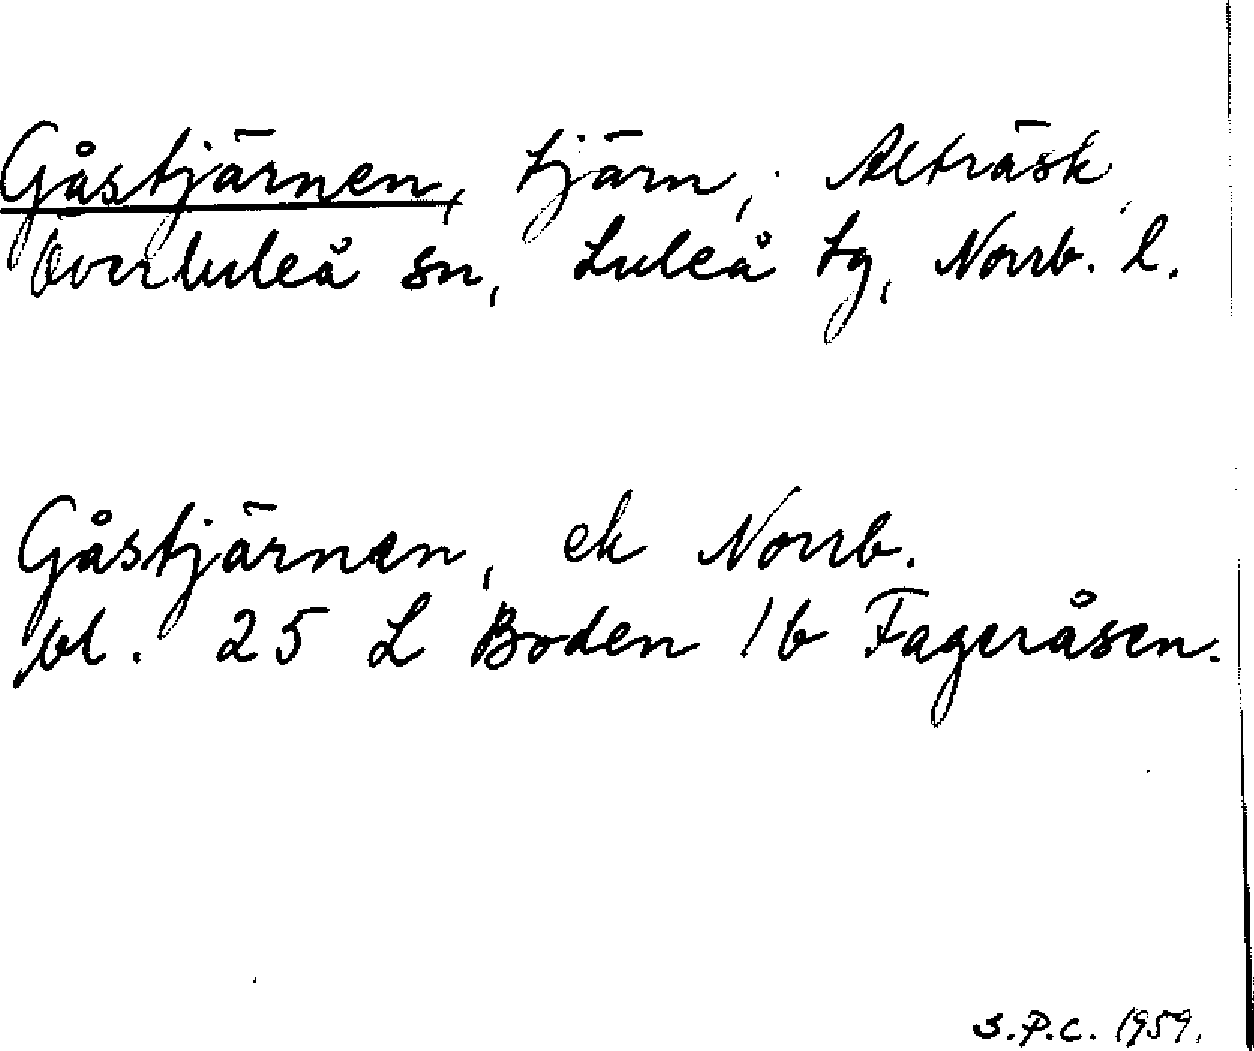 Gåstjärnen, tjärn, Alträsk,
Överluleå sn, Luleå tg, Norrb. l.
Gåstjärnen, ek Norrb.
bl. 25 L Boden 1b Fageråsen.
S.P.C. 1959.